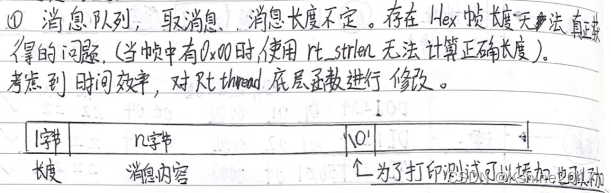 ① 消息队列，取消息，消息长度不定。存在 Hex 帧长度无法真正获
得的问题．(当帧中有0x00时，使用 rt_strlen 无法计算正确长度)。
考虑到时间效率，对Rt thread 底层函数进行修改。
1字节 n字节 '\0'
长度 消息内容 为了打印测试可以添加也可以